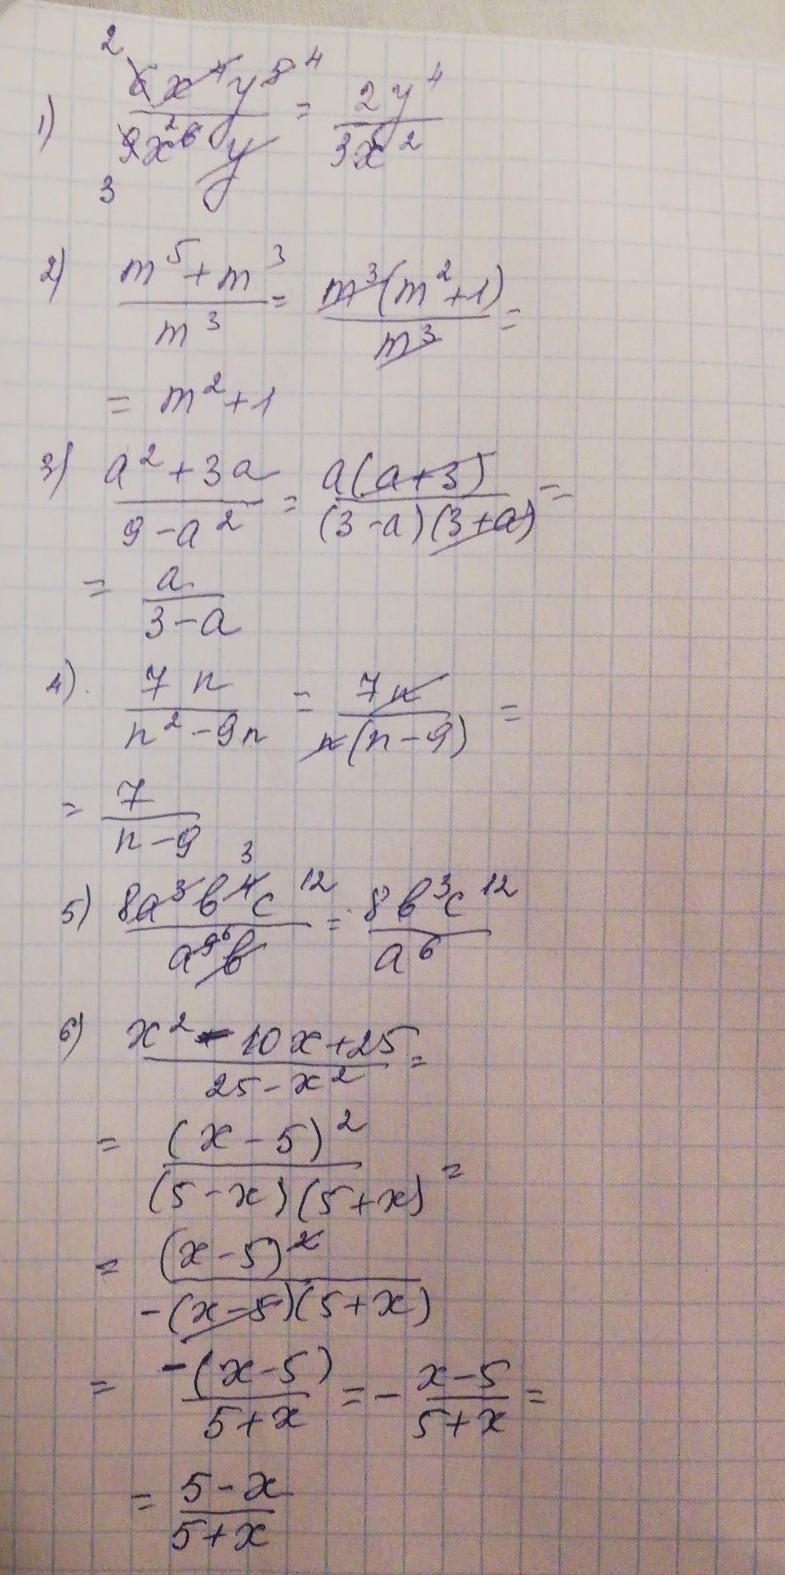 1) 6x⁴y⁵/9x⁶y = 2y⁴/3x²
2) (m⁵+m³)/m³ = m³(m²+1)/m³ =
= m²+1
3) (a²+3a)/(9-a²) = a(a+3)/(3-a)(3+a) =
= a/(3-a)
4). 7n/(n²-9n) = 7n/n(n-9) =
= 7/(n-9)
5) 8a³b⁴c¹²/a⁹b = 8b³c¹²/a⁶
6) (x²-10x+25)/(25-x²) =
= (x-5)²/(5-x)(5+x) =
= (x-5)²/-(x-5)(5+x)
= -(x-5)/(5+x) = -(x-5)/(5+x) =
= (5-x)/(5+x)